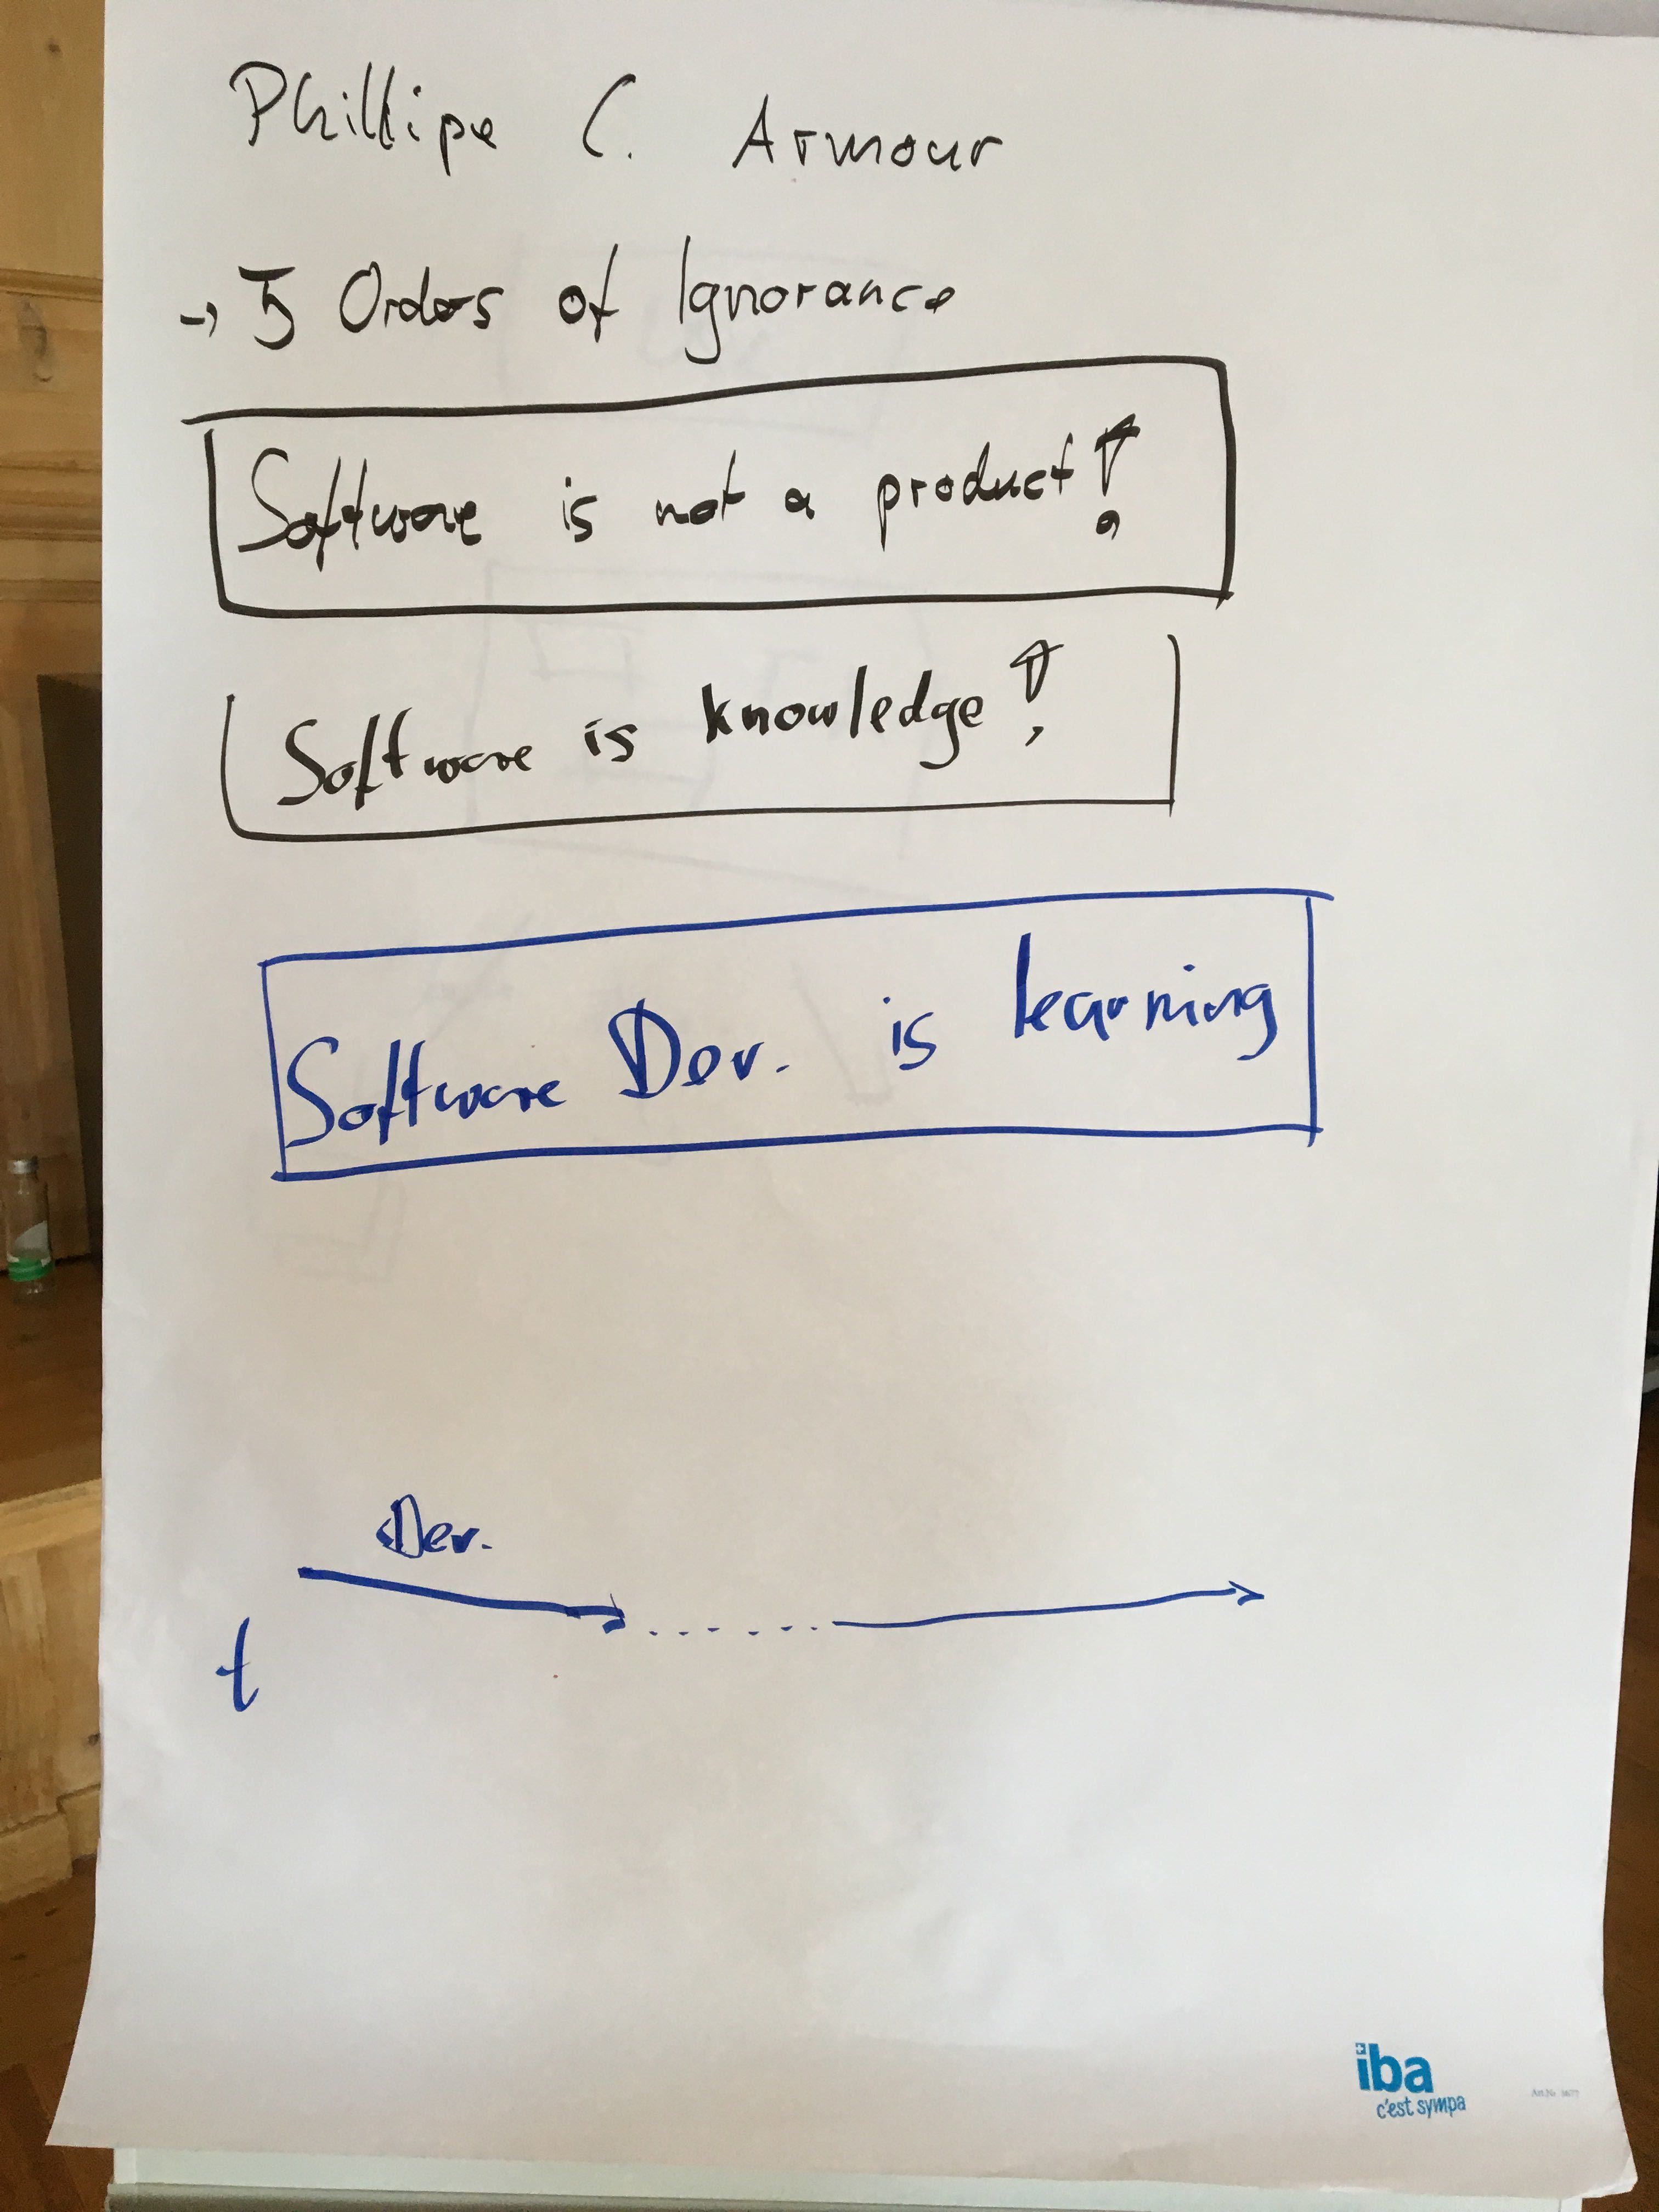 Phillipe C. Armour
→ 5 Orders of Ignorance
Software is not a product!
Software is knowledge!
Software Dev. is learning
Dev.
t
iba
c'est sympa